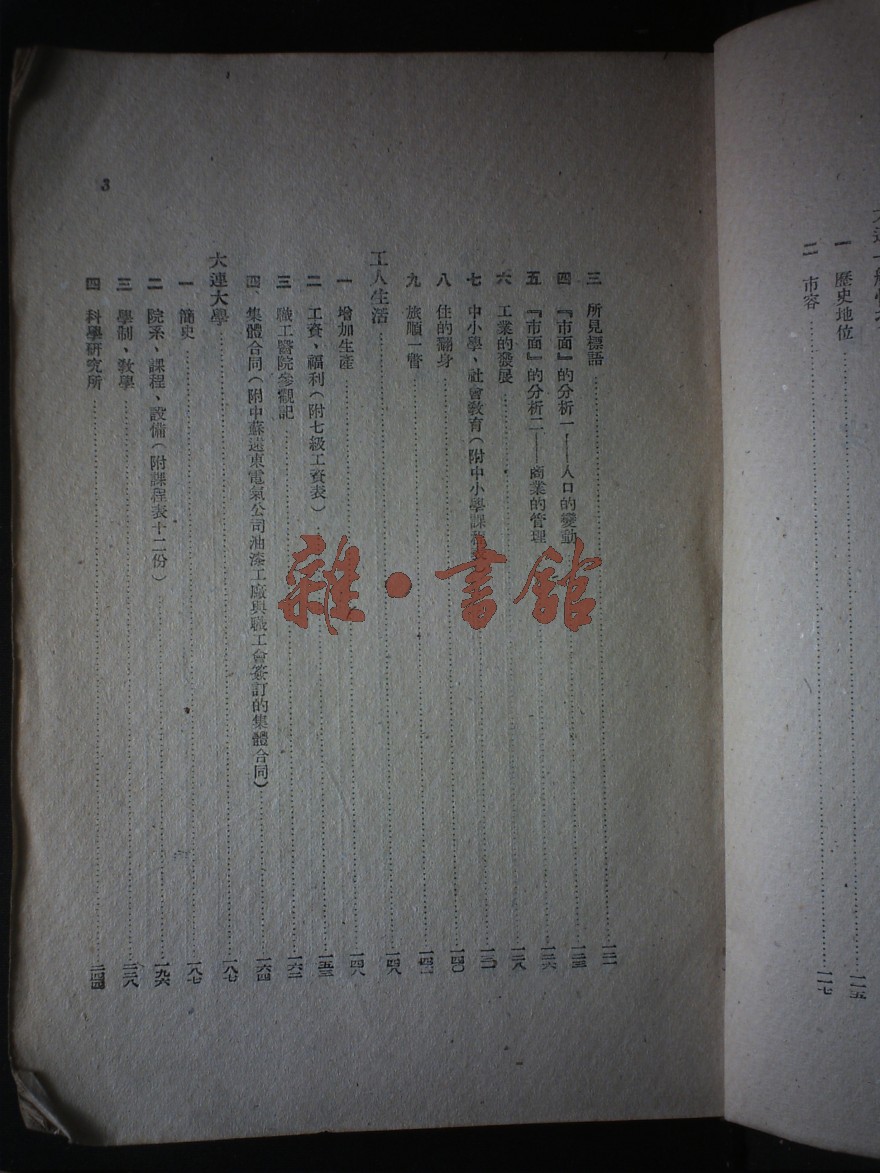 一 歷史地位……一一五
二 市容……一一七
三 所見標語……一二一
四 『市面』的分析一——人口的變動……一二三
五 『市面』的分析二——商業的管理……一二六
六 工業的發展……一二八
七 中小學、社會教育(附中小學課程……一三〇
八 住的翻身……一四〇
九 旅順一瞥……一四二
工人生活……一四八
一 增加生產……一四八
二 工資、福利(附七級工資表)……一五三
三 職工醫院參觀記……一六二
四、集體合同(附中蘇遠東電氣公司油漆工廠與職工會簽訂的集體合同)……一六四
大連大學……一八七
一 簡史……一八七
二 院系、課程、設備(附課程表十二份)……一九六
三 學制、教學……二二八
四 科學研究所
3
雜·書館